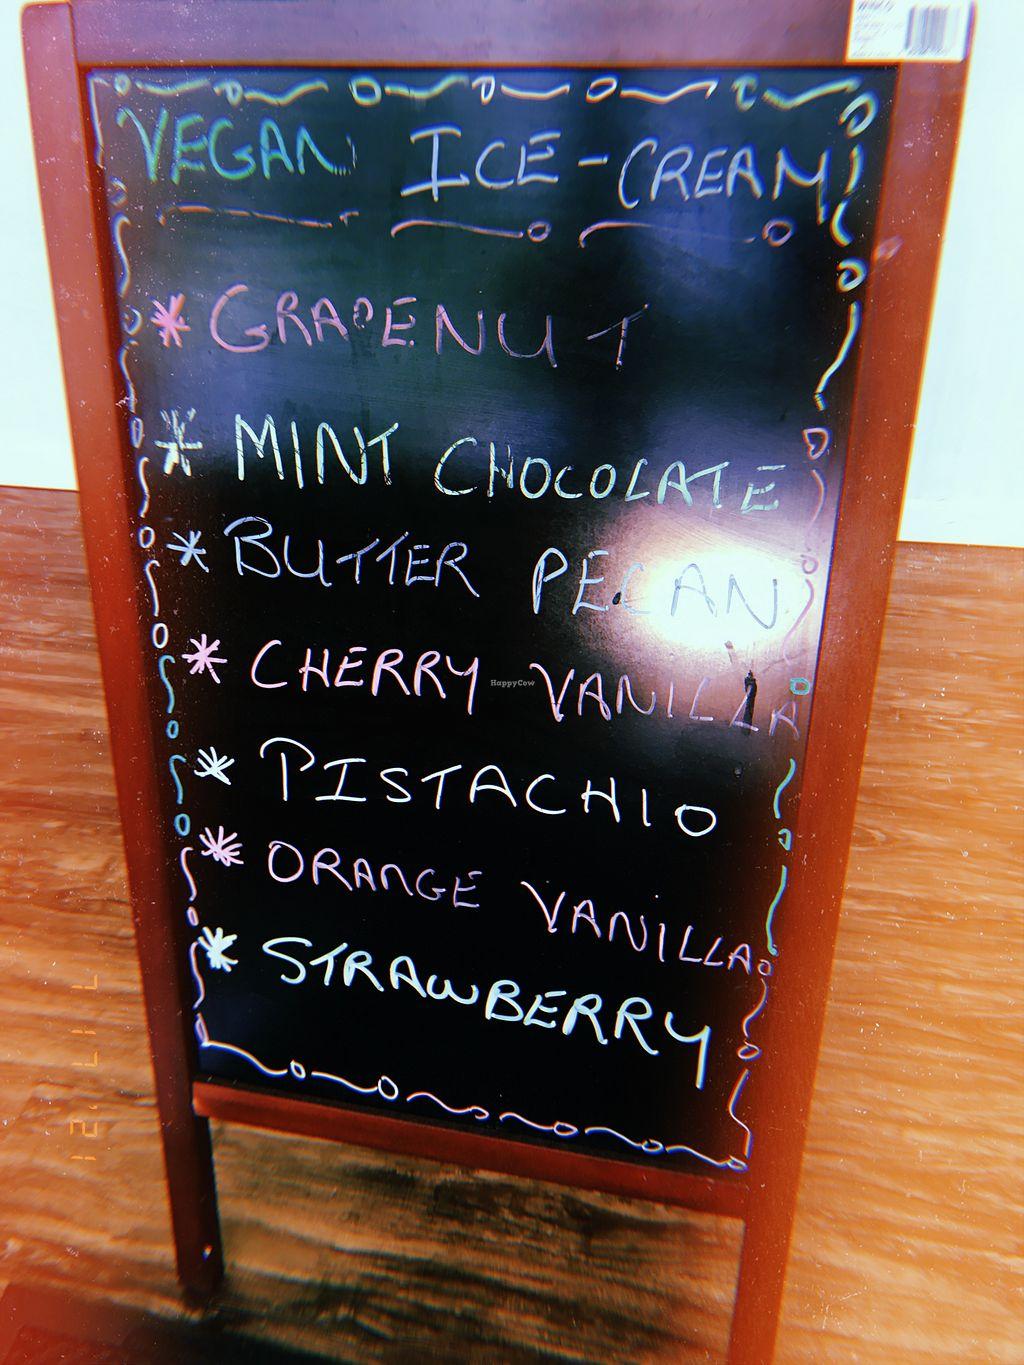 WINCO
VEGAN ICE-CREAM
* GRAPENUT
* MINT CHOCOLATE
* BUTTER PECAN
* CHERRY VANILLA
HappyCow
* PISTACHIO
* ORANGE VANILLA
* STRAWBERRY